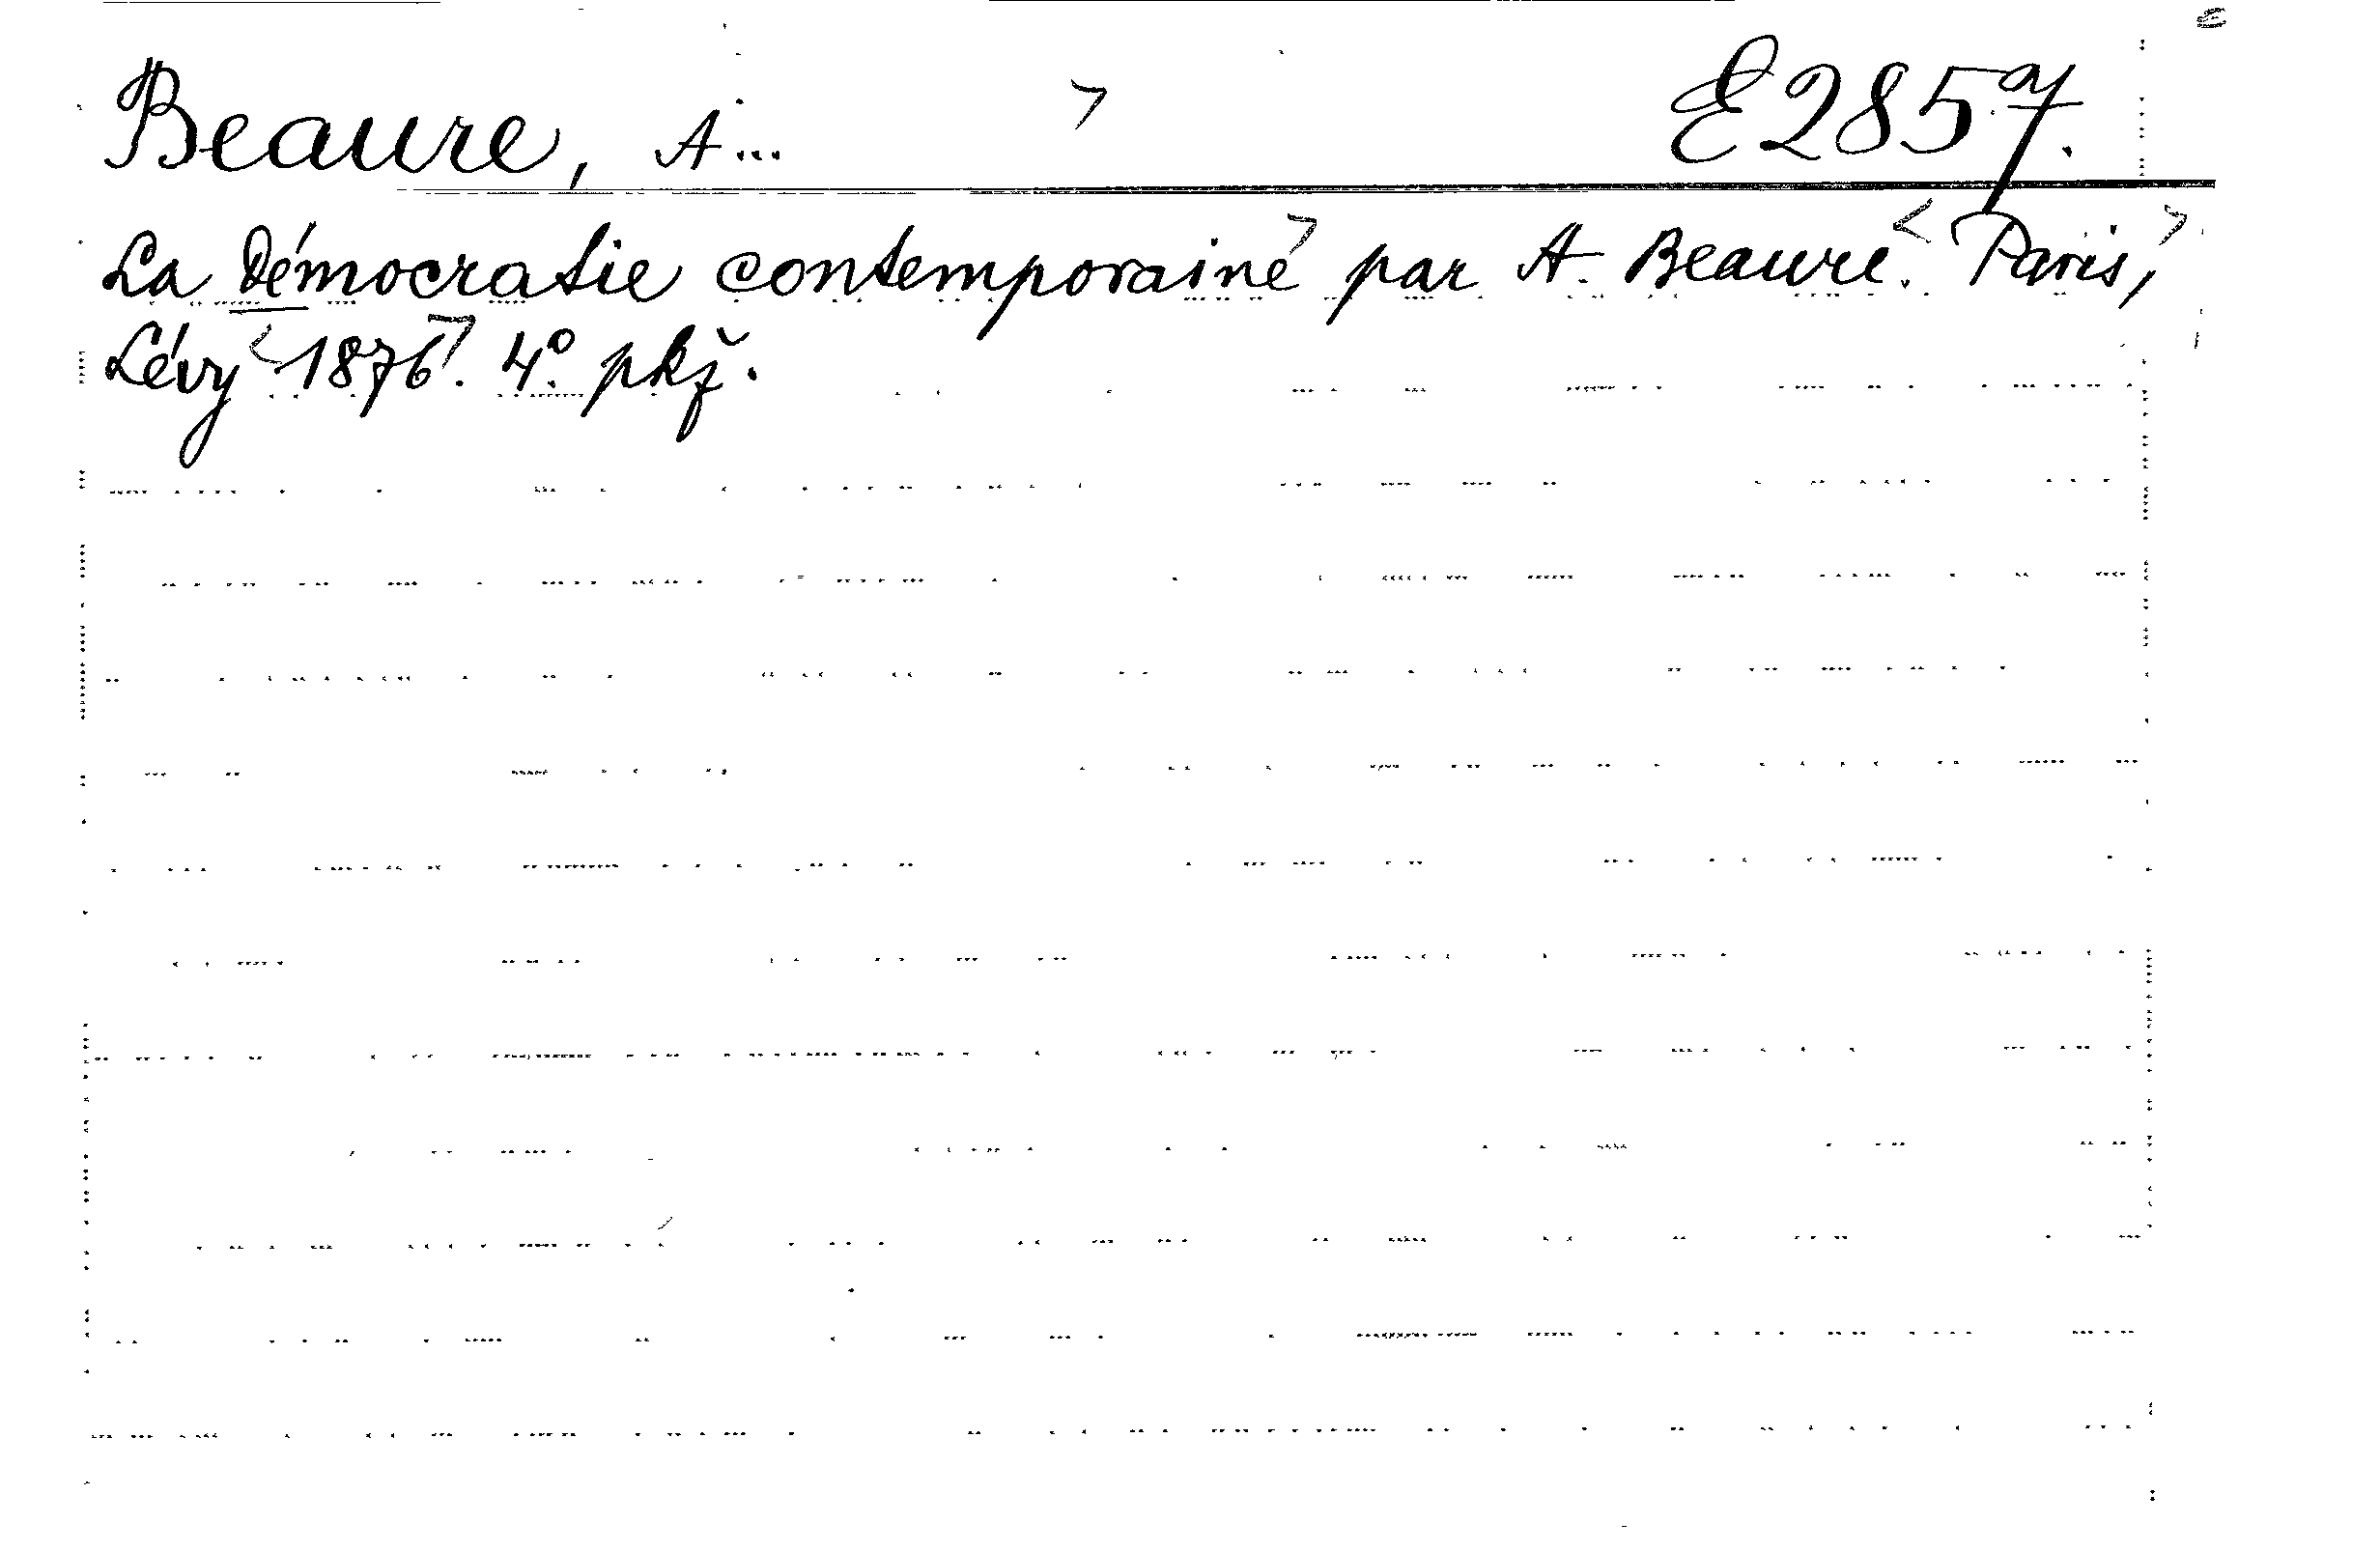 Beaure, A... E2857.
La Démocratie contemporaine par A. Beaure. Paris,
Lévy 1876. 4° pkž.